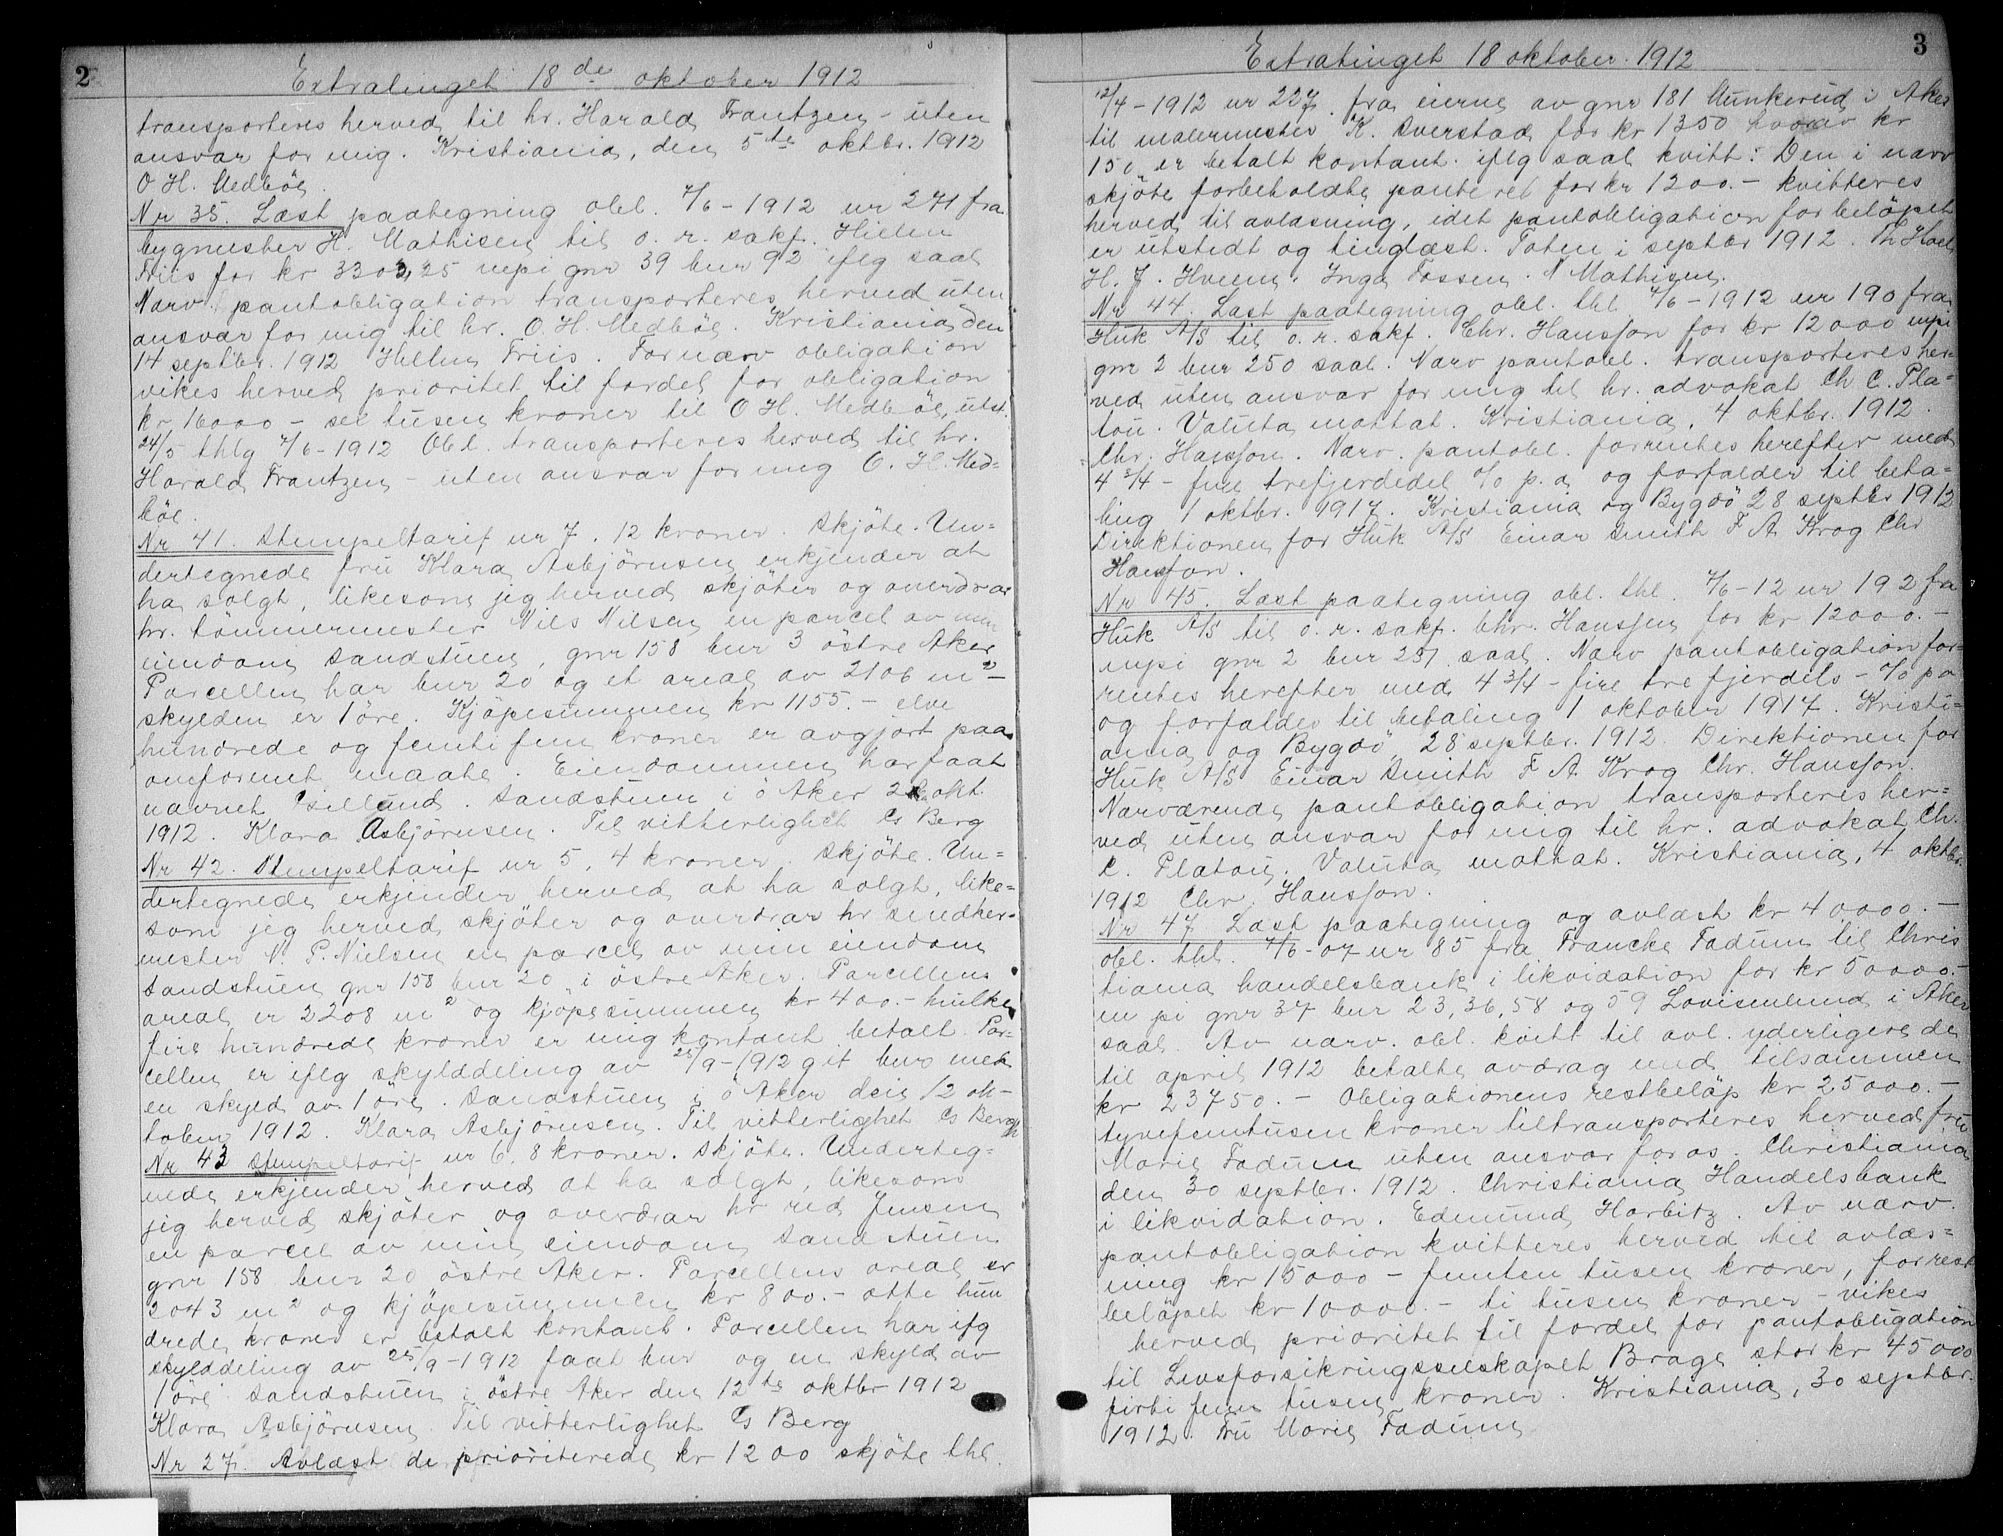 2
Extratinget 18de oktober 1912
transporteres herved til hr. Harald Frantzen - uten
ansvar for mig. Kristiania, den 5te oktbr. 1912
O H. Medböe.
Nr 35. Læst paategning obl. 7/6 - 1912 nr 271 fra
bygmester H. Mathisen til o. r. sakf. Hielm
Friis for kr 3303,25 mpi gnr 39 bnr 92 iflg saal
Narv. pantobligation transporteres herved uten
ansvar for mig til hr. O. H. Medböe. Kristiania den
14 septbr. 1912 Hielm Friis. For nærv obligation
vikes herved prioritet til fordel for obligation
kr 16000 - sei tusen kroner til O H. Medböe, utst.
24/5 thlg 7/6 - 1912 Obl. transporteres herved til hr.
Harald Frantzen - uten ansvar for mig O. H. Med=
böe.
Nr 41. Stempeltarif nr 7. 12 kroner. Skjöte. Un=
dertegnede fru Klara Asbjörnsen erkjender at
ha solgt, likesom jeg herved skjöter og overdrar
hr. tömmermester Nils Nilsen en parcel av min
eiendom Sandstuen, gnr 158 bnr 3 östre Aker
Parcellen har bnr 20 og et areal av 2106 m2 -
skylden er 1 öre. Kjöpesummen kr 1155.- elve
hundrede og femti fem kroner er avgjort paa
omforenet maate. Eiendommen har faat
navnet . Sandstuen i ö Aker 2 okt.
1912. Klara Asbjörnsen. Til vitterlighet Cs Berg
Nr 42. Stempeltarif nr 5. 4 kroner. Skjöte. Un=
dertegnede erkjender herved at ha solgt, like=
som jeg herved skjöter og overdrar hr snedker-
mester N. P. Nielsen en parcel av min eiendom
Sandstuen gnr 158 bnr 20 i östre Aker. Parcellens
areal er 2208 m2 og kjöpesummen kr 400.- hvilke
fire hundrede kroner er mig kontant betalt. Par-
cellen er iflg skylddeling av 25/9 - 1912 git bnr med
en skyld av 1 öre. Sandstuen i ö Aker den 12 ok-
tober 1912. Klara Asbjörnsen. Til vitterlighet Cs Berg
Nr 43 Stempeltarif nr 6. 8 kroner. Skjöte. Underteg=
nede erkjender herved at ha solgt, likesom
jeg herved skjöter og overdrar hr red Jensen
en parcel av min eiendom Sandstuen
gnr 158 bnr 20 östre Aker. Parcellens areal er
3043 m2 og kjöpesummen kr 800.- otte hun
drede kroner er betalt kontant. Parcellen har iflg
skylddeling av 25/9 - 1912 faat bnr og en skyld av
1 öre. Sandstuen i östre Aker den 12te oktbr 1912
Klara Asbjörnsen Til vitterlighet Cs Berg
Nr 27. Avlæst de prioriterede kr 1200 skjöte thl.
3
Extratinget 18 oktober 1912
12/4 - 1912 nr 227 fra eierne av gnr 181 Munkerud i Aker
til malermester K. Sverstad for kr 1350 hvorav kr
150 er betalt kontant. iflg saal kvitt: Den i narv
skjöte forbeholdte panteret for kr 1200.- kvitteres
herved til avlæsning, idet pantobligation for belöpet
er utstedt og tinglæst. Toten i septbr 1912. Th Hoel
H. J. Hveem. Inga Fossen. N Mathisen.
Nr 44. Læst paategning obl. thl 7/6 - 1912 nr 190 fra
Huk A/S til o. r. sakf. Chr. Hansson for kr 12000 mpi
gnr 2 bnr 250 saal. Narv pantobl. transporteres her=
ved uten ansvar for mig til hr. advokat Ch C. Pla=
tou. Valuta mottat. Kristiania, 4 oktbr. 1912.
Chr. Hansson. Narv. pantobl. forrentes herefter med
4 3/4 - fire trefjerdedel o/o p. a. og forfalder til beta=
ling 1 oktbr. 1917. Kristiania og Bygdö 28 septbr 1912
Direktionen for Huk A/S Einar Smith F A. Krog Chr
Hansson.
Nr 45. Læst paategning obl. thl. 7/6 - 12 nr 192 fra
Huk A/S til o. r. sakf. Chr. Hansson for kr 12000.-
mpi gnr 2 bnr 251 saal. Narv pantobligation for=
rentes herefter med 4 3/4 - fire tre fjerdels - o/o pa
og forfalder til betaling 1 oktober 1917. Kristi=
ania og Bygdö 28 septbr. 1912. Direktionen for
Huk A/S Einar Smith F A. Krog Chr. Hansson.
Narværende pantobligation transporteres her=
ved uten ansvar for mig til hr. advokat Ch.
C. Platou. Valuta mottat. Kristiania, 4 oktbr.
1912 Chr. Hansson.
Nr 47 Læst paategning og avlæst kr 40000.-
obl. thl. 7/6 - 07 nr 85 fra Francke Fadum til Chris
tiania handelsbank i likvidation for kr 50000.-
m pi gnr 37 bnr 23, 36, 58 og 59 Lovisenlund i Aker
saal. Av narv. obl. kvitt til avl. yderligere de
til april 1912 betalte avdrag med tilsammen
kr 23750.- Obligationens restbelöp kr 25000.-
tyvefemtusen kroner tiltransporteres herved fru
Marie Fadum uten ansvar for os. Christiania
den 30 septbr. 1912. Christiania Handelsbank
i likvidation. Edmund Harbitz. Av narv.
pantobligation kvitteres herved til avlæs=
ning kr 15000 - femten tusen kroner, for rest
belöpet kr 10000.- ti tusen kroner - vikes
herved prioritet til fordel for pantobligation
til Livsforsikringsselskapet Brage stor kr 45000
firti fem tusen kroner. Kristiania, 30 septbr.
1912. Fru Marie Fadum